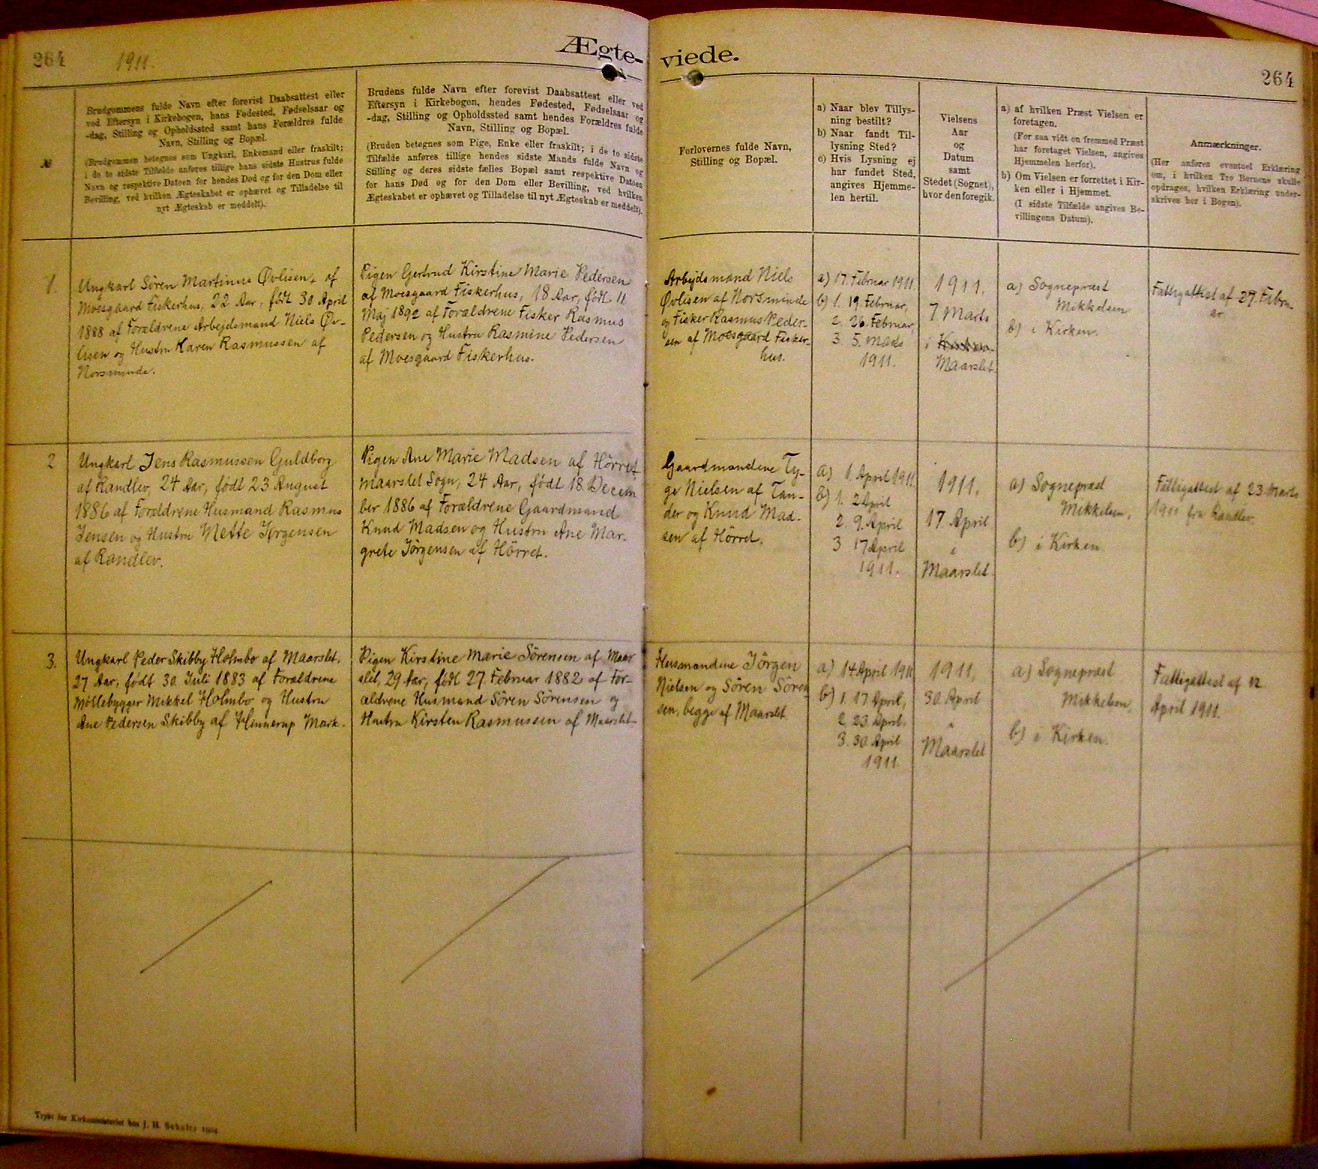 264
1911.
Ægte-
viede.
264
№
Brudgommens fulde Navn efter forevist Daabsattest eller
ved Eftersyn i Kirkebogen, hans Fødested, Fødselsaar og
-dag, Stilling og Opholdssted samt hans Forældres fulde
Navn, Stilling og Bopæl.
(Brudgommen betegnes som Ungkarl, Enkemand eller fraskilt;
i de to sidste Tilfælde anføres tillige hans sidste Hustrus fulde
Navn og respektive Datoen for hendes Død og for den Dom eller
Bevilling, ved hvilken Ægteskabet er ophævet og Tilladelse til
nyt Ægteskab er meddelt).
Brudens fulde Navn efter forevist Daabsattest eller ved
Eftersyn i Kirkebogen, hendes Fødested, Fødselsaar og
-dag, Stilling og Opholdssted samt hendes Forældres fulde
Navn, Stilling og Bopæl.
(Bruden betegnes som Pige, Enke eller fraskilt; i de to sidste
Tilfælde anføres tillige hendes sidste Mands fulde Navn og
Stilling og deres sidste fælles Bopæl samt respektive Datoen
for hans Død og for den Dom eller Bevilling, ved hvilken
Ægteskabet er ophævet og Tilladelse til nyt Ægteskab er meddelt).
Forlovernes fulde Navn,
Stilling og Bopæl.
a) Naar blev Tillys-
ning bestilt?
b) Naar fandt Til-
lysning Sted?
c) Hvis Lysning ej
har fundet Sted,
angives Hjemme-
len hertil.
Vielsens
Aar
og
Datum
samt
Stedet (Sognet),
hvor den foregik.
a) af hvilken Præst Vielsen er
foretagen.
(For saa vidt en fremmed Præst
har foretaget Vielsen, angives
Hjemmelen herfor).
b) Om Vielsen er forrettet i Kir-
ken eller i Hjemmet.
(I sidste Tilfælde angives Be-
villingens Datum).
Anmærkninger.
(Her anføres eventuel Erklæring
om, i hvilken Tro Børnene skulle
opdrages, hvilken Erklæring under-
skrives her i Bogen).
1.
Ungkarl Søren Martinus Øvlisen, af
Moesgaard Fiskerhus, 22 Aar, født 30 April
1888 af Forældrene Arbejdsmand Niels Øv-
lisen og Hustru Karen Rasmussen af
Norsminde.
Pigen Gertrud Kirstine Marie Pedersen
af Moesgaard Fiskerhus, 18 Aar, født 11
Maj 1892 af Forældrene Fisker Rasmus
Pedersen og Hustru Rasmine Pedersen
af Moesgaard Fiskerhus.
Arbejdsmand Niels
Øvlisen af Norsminde
og Fisker Rasmus Peder-
sen af Moesgaard Fisker-
hus.
a) 17. Februar 1911.
b) 1. 19. Februar,
2. 26. Februar,
3 5. Marts
1911.
1911.
7 Marts
i
Maarslet.
a) Sognepræst
Mikkelsen
b) i Kirken.
Fattigattest af 27. Febru-
ar.
2
Ungkarl Jens Rasmussen Guldborg
af Randlev, 24 Aar, født 23 August
1886 af Forældrene Husmand Rasmus
Jensen og Hustru Mette Jørgensen
af Randlev.
Pigen Ane Marie Madsen af Hörret,
Maarslet Sogn, 24 Aar, født 18 Decem
ber 1886 af Forældrene Gaardmand
Knud Madsen og Hustru Ane Mar-
grete Jörgensen af Hörret.
Gaardmændene Ty-
ge Nielsen af Tan-
der og Knud Mad-
sen af Hörret.
a) 1 April 1911.
b) 1. 2 April
2 9. April
3 17 April
1911.
1911.
17 April
i
Maarslet
a) Sognepræst
Mikkelsen,
b) i Kirken.
Fattigattest af 23 Marts
1911 fra Randlev.
3.
Ungkarl Peder Skibby Holmbo af Maarslet,
27 Aar, født 30 Juli 1883 af Forældrene
Möllebygger Mikkel Holmbo og Hustru
Ane Pedersen Skibby af Hinnerup Mark.
Pigen Kirstine Marie Sörensen af Maar
slet 29 Aar, født 27 Februar 1882 af For-
ældrene Husmand Sören Sörensen og
Hustru Kirsten Rasmussen af Maarslet
Husmændene Jörgen
Nielsen og Sören Sören
sen, begge af Maarslet
a) 14 April 1911
b) 1. 17 April,
2. 23 April
3. 30 April
1911.
1911,
30. April
i
Maarslet
a) Sognepræst
Mikkelsen,
b) i Kirken.
Fattigattest af 12
April 1911.
Trykt for Kirkeministeriet hos J. H. Schultz 1904